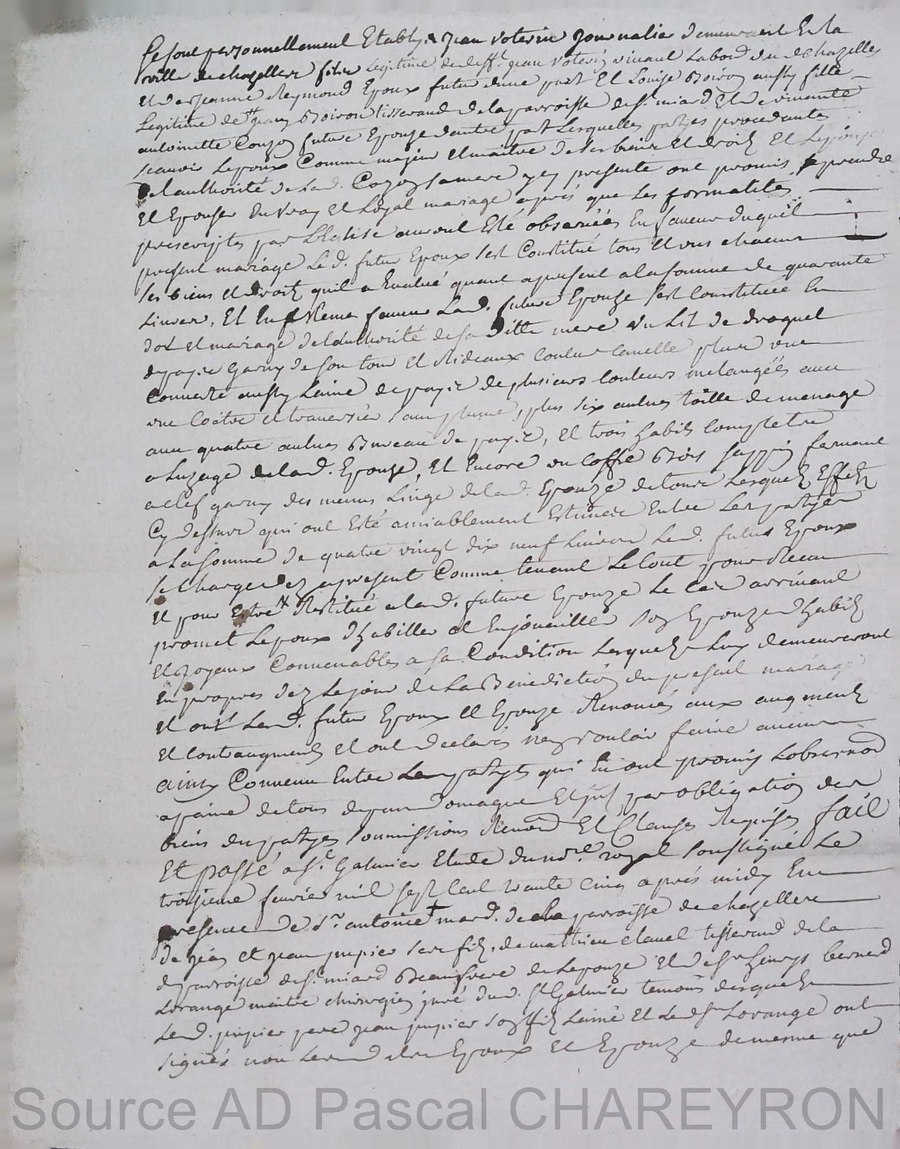 Se sont personnellement Etablys jean voterin Journalier demeurant En la
ville de chazelles fils Legitime de deff.t jean voterin vivant Labour du d. chazelles
Et de jeanne Reymond Epoux futur d'une part Et Louise Boiron aussy fille
Legitime de jean Boiron tisserand de la parroisse de St. miard Et de vivante
antoinette Couzon future Epouze d'autre part Lesquelles partyes procedantes
scavoir Lepoux Comme majeur Et maitre de ses biens Et droits Et Lepouze
de L'authorité de La d. Couzon sa mere y presente ont promis se prendre
Et Epouser En vray Et Loyal mariage après que Les formalités
prescriptes par L'Eglise auront Eté observées En faveur duquel
present mariage Le d. futur Epoux s'est Constitué tous Et uns chacuns
ses biens Et droits qu'il a Evalué quant a present a la somme de quarante
Livres, Et En meme faveur La d. future Epouze s'est Constituée En
dot Et mariage de L'authorité de sa ditte mere un Lit de droguet
de payis Garny de son tour Et Rideaux Couleur Canelle plus une
Couverte aussy Laine de payis de plusieurs Couleurs melangées avec
une Coëtre Et traversier sans plume, plus six aulnes toille de menage
avec quatre aulnes Bureau de payis, Et trois habits Complets
a Luzage de la d. Epouze, Et Encore un Coffre Bois sappin fermant
a Clef garny des menus Linge de la d. Epouze de tous Lesquels Effets
Cy dessus qui ont Eté amiablement Estimés Entre Les partyes
a La somme de quatre vingt dix neuf Livres Le d. futur Epoux
se Charge dez a present Comme tenant Le tout pour Receu
Et pour Estre Restitué a la d. future Epouze Le Cas arrivant
promet Lepoux d'habiller Et Enjoailler son Epouze d'habits
Et Joyaux Convenables a sa Condition Lesquels Luy demeureront
En propres dez Le jour de La Benediction du present mariage
Et ont Les d. futur Epoux Et Epouze Renoncés aux augments
Et Contraugments Et ont declarés n'en vouloir faire aucun
ainsy Convenu Entre Les partyes qui L'ont promis L'observer
a paine de tous depens domages Et par obligation de
biens des partyes soumissions Renon Et Clauses Requises fait
Et passé a St. Galmier Etude du no.re royal soussigné Le
troisieme fevrier mil sept Cent trante Cinq après midy En
presence de s.r antoine mard. de la parroisse de chazelles
de jean Et jean pupier ses fils, de matthieu Clavel tisserand de la
de parroisse de St. miard Beaufrere de Lepouze Et de s.r Benoys bernard
Lorange maitre chirurgien juré du d. St Galmier temoins desquels
Le d. pupier pere jean pupier son fils L'ainé Et Led. s.r Lorange ont
signés non Les d. Epoux Et Epouze de meme que
Source AD Pascal CHAREYRON